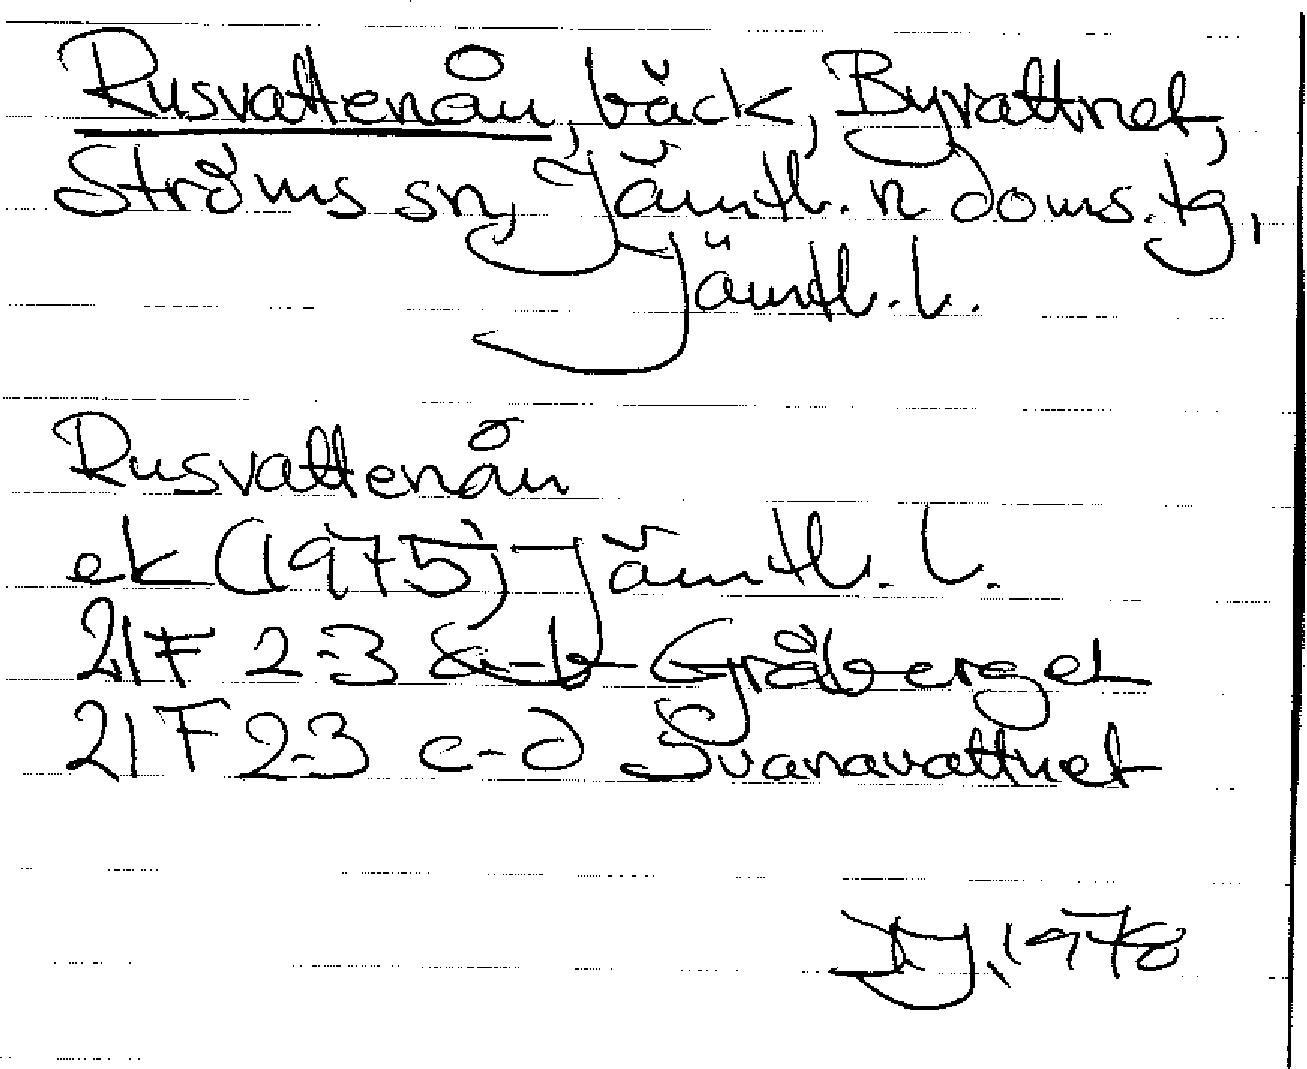 Rusvattenån, bäck, Byvattnet,
Ströms sn, Jämtl. n doms. tg,
Jämtl. l.
Rusvattenån
ek (1975) Jämtl. l.
21F 2-3 a-b Gråberget
21F 2-3 c-d Svanavattnet
1978